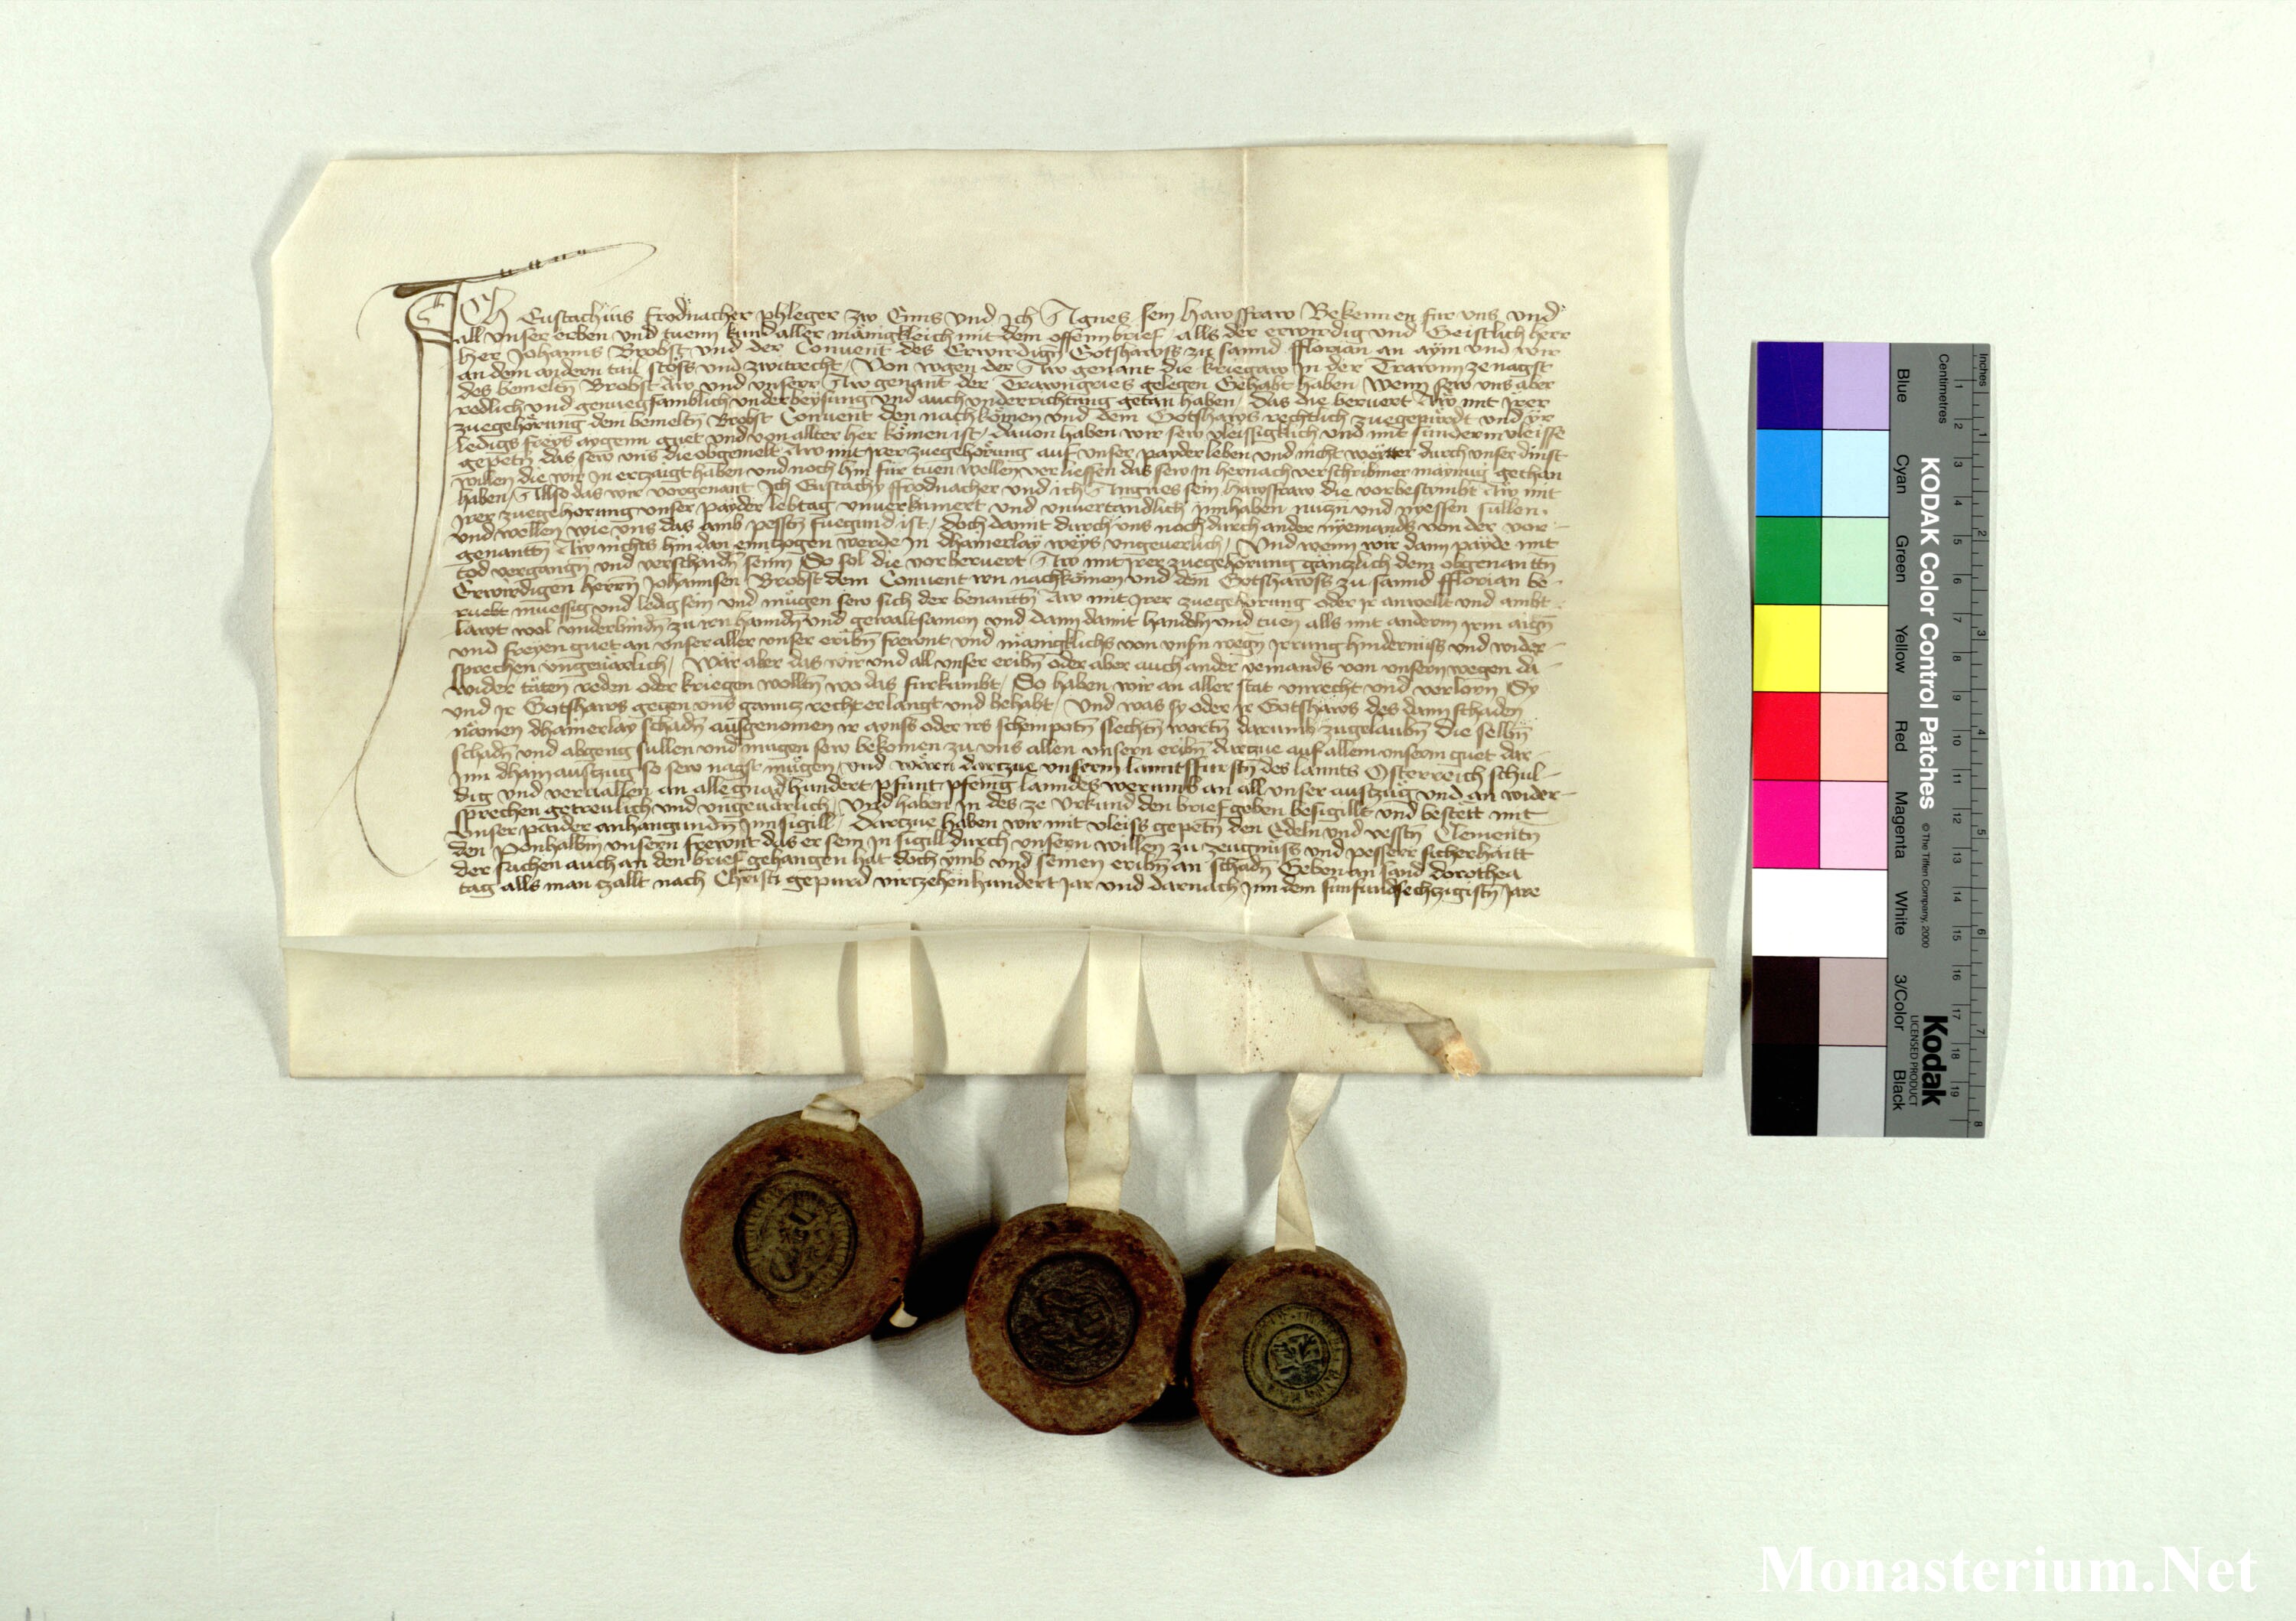 Ich Eustachius frodnacher phleger zw Enns vnd ich Agnes sein hawsfraw Bekennen fur vns vnd
all vnser erben vnd tuenn kund aller mänigkleich mit dem offenn brief / alls der erwirdig vnd Geistlich herr
her Johanns Brobst vnd der Conuent des Erwirdigen Gotshawss zu sannd fflorian an aym vnd wir
an dem andern tail stöss vnd zwitrecht / Von wegen der Aw genant die kriegaw in der Trawnn ze nagst
des bemeltn Brobst Aw vnd vnserr Aw genant der Trawngries gelegen Gehabt haben / Wenn sew vns aber
redlich vnd genuegsamblich vnderbeysung vnd auch vnderrichtung getan haben / das die beruert Aw mit Jrer
zuegehörung dem bemeltn Brobst Conuent den nachkömen vnd dem Gotshaws rechtlich zuegepürdt vnd yr
ledigs freys aygenn guet vnd von allter her kömen ist / dauon haben wir sew vleissigklich vnd mit sunderm vleisse
gepetn das sew vns die obgemelt Aw mit Jrer zuegehörung auf vnser payder leben vnd nicht weytter durch vnser dinst
willen die wir in erczaigt haben vnd noch hin für tuen wellen verliessen das sew in hernach verschribner maynug gethan
haben / Allso das wir vorgenant Ich Eustachy ffrodnacher vnd ich Angnes sein hawsfraw die vorbestymbt Aw mit
Jrer zuegehorung vnser payder lebtag vnuerkumert vnd vnuertandlich jnnhaben nuczn vnd nyessen süllen
vnd wellen wie vns das amb pesstn fuegund ist / doch damit durch vns noch durch ander nyemands von der vor-
genanttn Aw nichts hindan enntzogen werde in dhainerlay weys vngeuerlich / Vnd wenn wir dann payde mit
tod vergangn vnd verschaidn seinn So sol die vorberuert Aw mit Jrer zuegehörung gänczlich dem obgenanttn
Erwirdigen herrn Johannsen Brobst dem Conuent irn nachkömen vnd dem Gotshawss zu sannd fflorian be-
ruebt muessig vnd ledig sein vnd mügen sew sich der benanttn Aw mit Jrer zuegehorung oder jr anwellt vnd ambt
lawt wol vnderbindn zu irn hanndn vnd gewaltsamen vnd dann damit handeln vnd tuen alls mit anderm jrm aign
vnd freyen guet an vnser aller vnser eribn frewnt vnd mänigklichs von vnsn wegn jrrung hindernuss vnd wider-
sprechen vngeuärlich / Wär aber das wir vnd all vnser eribn oder aber auch ander yemands von vnsern wegen da-
wider täten reden oder kriegen wolltn wo das furkumbt / So haben wir an aller stat vnrecht vnd verlorn Sy
vnd jr Gotshaws gegen vns gannz recht erlangt vnd behabt / Vnd was sy oder jr Gotshaws des dann schaden
nämen dhainerlay schadn ausgenomen jr aynss oder irs schempotn slechtn wortn darumb zugelaubn Die selbn
schadn vnd abgeng sullen vnd mugen sew bekomen zu vns allen vnsern eribn darczue auf allem vnserm guet dar-
jnn dhain auszug so sew nagst mügen / vnd wärn darczue vnserm lanntsfurstn des lannts Osterreich schul-
dig vnd veruallen an alle gnad hundert pfunt pfenig lanndes werung an all vnser auszug vnd an wider-
sprechen getreulich vnd vngeuärlich / Vnd haben in des ze Vrkund den brief geben besigillt vnd bestett mit
Vnser paider anhangundn Jnnsigill / Darczue haben wir mit vleiss gepetn den Edeln vnd vesstn Clementn
den Ponhalbm vnsern frewnt das er sein jnsigill durch vnsern willen zu zeugnuss vnd pesserr sicherhaitt
der sachen auch an den brief gehangen hat doch ymb vnd seinen eribn an schadn Geben an sand dorothea
tag alls man czallt nach Christi gepurd virczehenhundert jar vnd darnach jnn dem funfundsechzigistn Jare
KODAK Color Control Patches
© The Tiffen Company, 2000
Kodak
LICENSED PRODUCT
Inches
Centimetres
Blue
Cyan
Green
Yellow
Red
Magenta
White
3/Color
Black
Monasterium.Net